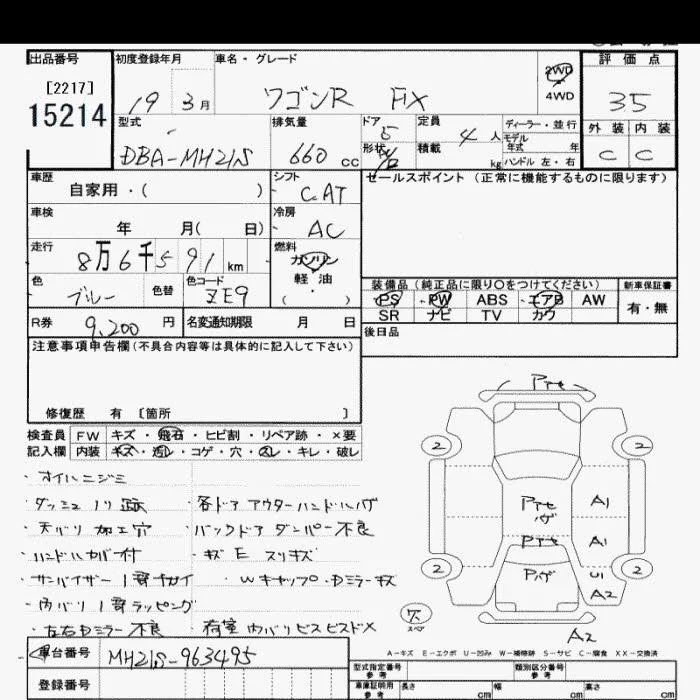 出品番号
[2217]
15214
初度登録年月
19 3月
車名・グレード
ワゴンR FX
2WD
4WD
評価点
35
外装 内装
C C
型式
DBA-MH21S
排気量
660 cc
ドア 5
形状
定員 4人
積載 kg
ディーラー・並行
モデル年式 年
ハンドル 左・右
車歴
自家用・( )
シフト
C.AT
セールスポイント (正常に機能するものに限ります)
車検
年 月( 日)
冷房
AC
走行
8万6千591 km
燃料
ガソリン
軽油
( ・ )
色
ブルー
色替
色コード
ZE9
装備品(純正品に限り○をつけてください)
PS PW ABS エアB AW
SR ナビ TV カワ
新車保証書
有・無
R券
9,200 円
名変通知期限 月 日
後日品
注意事項申告欄(不具合内容等は具体的に記入して下さい)
修復歴 有 [箇所 ]
検査員記入欄
FW キズ・飛石・ヒビ割・リペア跡・×要
内装 キズ・汚レ・コゲ・穴・スレ・キレ・破レ
・オイルニジミ
・ダッシュノリ跡 ・各ドアアウターハンドルハゲ
・天バリ加工穴 ・バックドアダンパー不良
・ハンドルカバー付 ・キズE スリキズ
・サンバイザー ・Wキャップ・Dミラーキズ
・内バリ ラッピング
・左右Dミラー不良 ・荷室内バリビスビスドメ
Pテセ
2 2
Pテセ
ハゲ
A1
Pテセ
A1
Pハゲ
U1
A2
2 2
欠
スペア
A2
A-キズ E-エクボ U-凹み W-補修跡 S-サビ C-腐食 XX-交換済
車台番号
MH21S-963495
登録番号
型式指定番号
参考
類別区分番号
参考
車庫証明用
参考
長さ cm 幅 cm 高さ cm